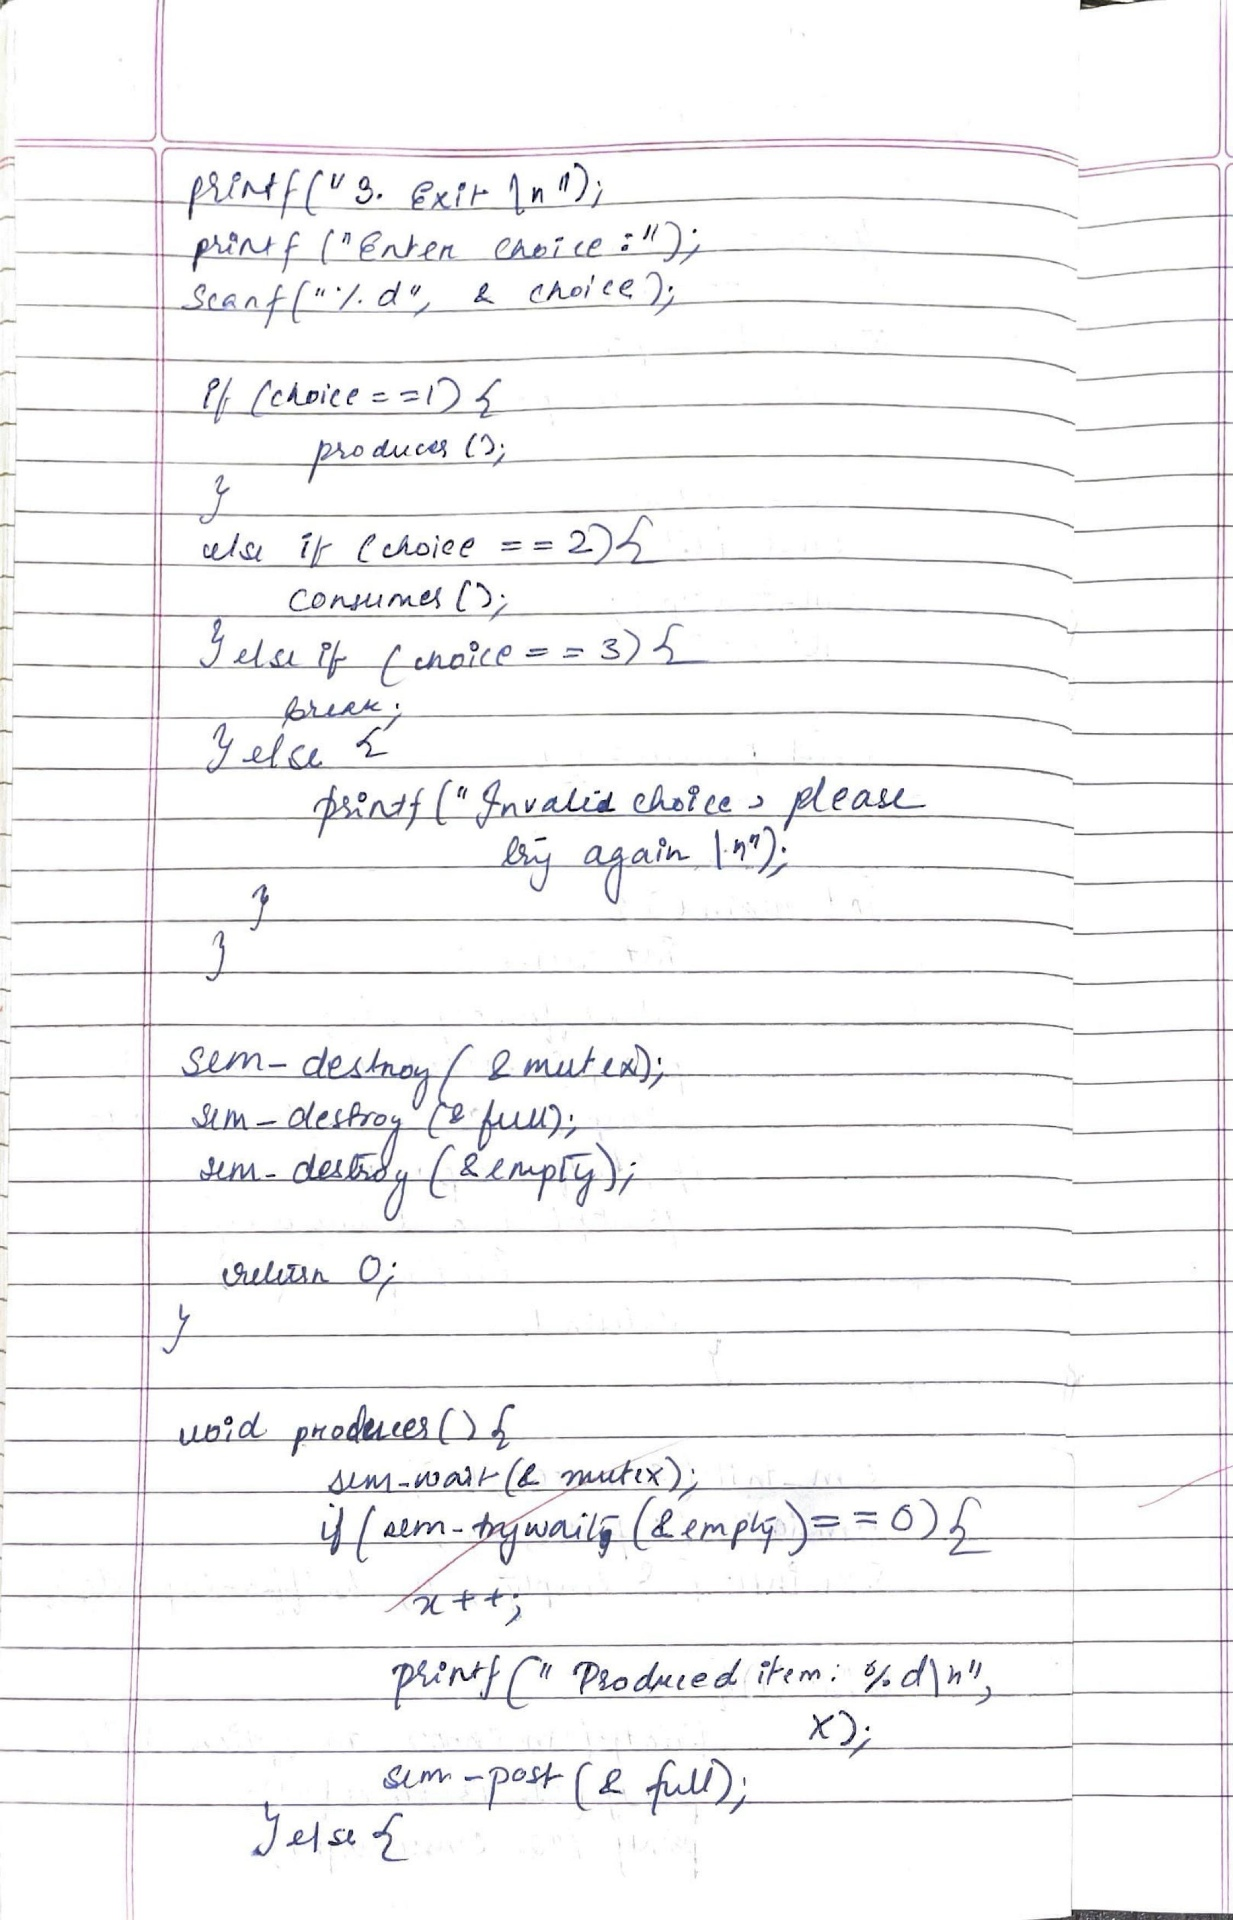 printf("3. Exit \n");
printf ("Enter choice :");
Scanf("%d", & choice);
if (choice ==1) {
producer ();
}
else if (choice == 2){
consumer ();
} else if (choice == 3) {
break;
} else {
printf ("Invalid choice, please
try again \n");
}
}
sem-destroy ( & mutex);
sem-destroy (& full);
sem-destroy (& empty);
return 0;
}
void producer() {
sem-wait (& mutex);
if (sem-trywait (& empty) == 0) {
x++;
printf (" Produced item: %d\n",
x);
sem-post (& full);
} else {